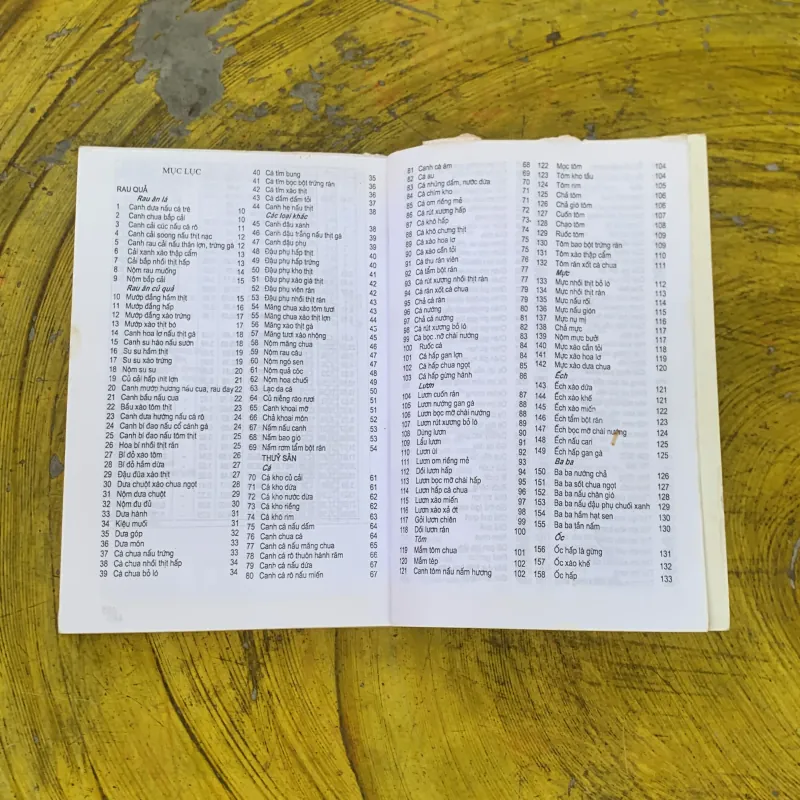 MỤC LỤC
RAU QUẢ
Rau ăn lá
1 Canh dưa nấu cá trê 10
2 Canh chua bắp cải 10
3 Canh cải cúc nấu cá rô 11
4 Canh cải soong nấu thịt nạc 12
5 Canh rau cải nấu thận lợn, trứng gà 12
6 Cải xanh xào thập cẩm 13
7 Cải bắp nhồi thịt hấp 13
8 Nộm rau muống 14
9 Nộm bắp cải 15
Rau ăn củ quả
10 Mướp đắng hầm thịt 15
11 Mướp đắng hấp 16
12 Mướp đắng xào trứng 17
13 Mướp xào thịt bò 17
14 Canh hoa lơ nấu thịt gà 18
15 Canh su hào nấu sườn 17
16 Su su hầm thịt 18
17 Su su xào trứng 19
18 Nộm su su 20
19 Củ cải hấp thịt lợn 21
20 Canh mướp hương nấu cua, rau đay 22
21 Canh bầu nấu cua 21
22 Bầu xào tôm thịt 22
23 Canh dưa hường nấu cá rô 23
24 Canh bí đao nấu cổ cánh gà 24
25 Canh bí đao nấu tôm thịt 25
26 Hoa bí nhồi thịt rán 25
27 Bí đỏ xào tôm 26
28 Bí đỏ hầm dừa 27
29 Đậu đũa xào thịt 27
30 Dưa chuột xào chua ngọt 28
31 Nộm dưa chuột 29
32 Nộm đu đủ 30
33 Dưa hành 31
34 Kiệu muối 31
35 Dưa góp 32
36 Dưa món 33
37 Cà chua nấu trứng 33
38 Cà chua nhồi thịt hấp 34
39 Cà chua bỏ lò 34
40 Cà tím bung 35
41 Cà tím bọc bột trứng rán 36
42 Cà tím xào thịt 36
43 Cà dầm dấm tỏi 37
44 Canh hẹ nấu thịt 38
Các loại khác
45 Canh đậu xanh 38
46 Canh đậu trắng nấu thịt gà 39
47 Canh đậu phụ 39
48 Đậu phụ hấp thịt 40
49 Đậu phụ hấp trứng 40
50 Đậu phụ kho thịt 41
51 Đậu phụ xào giá thịt 42
52 Đậu phụ viên rán 42
53 Đậu phụ nhồi thịt rán 42
54 Măng chua xào tôm tươi 43
55 Măng chua xào thịt lợn 44
56 Măng xào thịt gà 45
57 Măng tươi xào nhộng 45
58 Nộm măng chua 46
59 Nộm rau câu 47
60 Nộm ngó sen 48
61 Nộm quả cóc 48
62 Nộm hoa chuối 49
63 Lạc da cá 50
64 Củ niễng rào rươi 51
65 Canh khoai mỡ 51
66 Chả khoai môn 52
67 Nấm nấu canh 53
68 Nấm bao giò 53
69 Nấm rơm tẩm bột rán 54
THUỶ SẢN
Cá
70 Cá kho củ cải 61
71 Cá kho dừa 61
72 Cá kho nước dừa 62
73 Cá kho riềng 62
74 Cá kho rim 63
75 Canh cá nấu dấm 64
76 Canh chua cá 64
77 Canh cá nấu măng chua 65
78 Canh cá rô thuôn hành răm 66
79 Canh cá nấu dứa 67
80 Canh cá rô nấu miến 67
81 Canh cá ám 68
82 Cá au 69
83 Cá nhúng dấm, nước dừa 70
84 Cá chim kho 71
85 Cá om riềng mẻ 71
86 Cá rút xương hấp 72
87 Cá khô hấp 73
88 Cá kho chưng thịt 74
89 Cá xào hoa lơ 75
90 Cá xào cần tỏi 75
91 Cá thu rán viên 76
92 Cá tẩm bột rán 76
93 Cá rút xương nhồi thịt rán 77
94 Cá rán xốt cà chua 78
95 Chả cá rán 79
96 Cá nướng 79
97 Chả cá nướng 81
98 Cá rút xương bỏ lò 82
99 Cá bọc mỡ chài nướng 83
100 Ruốc cá 84
101 Cá hấp gan lợn 84
102 Cá hấp chua ngọt 85
103 Cá hấp gừng hành 86
Lươn
104 Lươn cuốn rán 87
105 Lươn nướng gan gà 88
106 Lươn bọc mỡ chài nướng 88
107 Lươn rút xương bỏ lò 89
108 Dừng lươn 90
109 Lẩu lươn 91
110 Lươn ủi 92
111 Lươn om riềng mẻ 93
112 Dồi lươn hấp 94
113 Lươn bọc mỡ chài hấp 95
114 Lươn hấp cà chua 96
115 Lươn xào miến 97
116 Lươn xào xả ớt 98
117 Gỏi lươn chiên 99
118 Dồi lươn rán 100
Tôm
119 Mắm tôm chua 102
120 Mắm tép 102
121 Canh tôm nấu nấm hương 102
122 Mọc tôm 104
123 Tôm kho tầu 104
124 Tôm rim 105
125 Chả tôm 105
126 Chả giò tôm 106
127 Cuốn tôm 107
128 Chạo tôm 108
129 Ruốc tôm 109
130 Tôm bao bột trứng rán 109
131 Tôm xào thập cẩm 110
132 Tôm rán xốt cà chua 111
Mực
133 Mực nhồi thịt bỏ lò 112
134 Mực nhồi thịt rán 113
135 Mực nấu rối 114
136 Mực nấu giòn 115
137 Mực nụ mị 116
138 Chả mực 117
139 Nộm mực bưởi 117
140 Mực xào cần tỏi 118
141 Mực xào hoa lơ 119
142 Mực xào dưa chua 120
Ếch
143 Ếch xào dừa 121
144 Ếch xào khế 122
145 Ếch xào miến 122
146 Ếch tẩm bột rán 123
147 Ếch bọc mỡ chài nướng 124
148 Ếch nấu cari 125
149 Ếch hấp gan gà 125
Ba ba
150 Ba ba nướng chả 126
151 Ba ba sốt chua ngọt 127
152 Ba ba nấu chân giò 128
153 Ba ba nấu đậu phụ chuối xanh 129
154 Ba ba hầm hạt sen 130
155 Ba ba tần nấm 130
Ốc
156 Ốc hấp lá gừng 131
157 Ốc xào khế 132
158 Ốc hấp 133